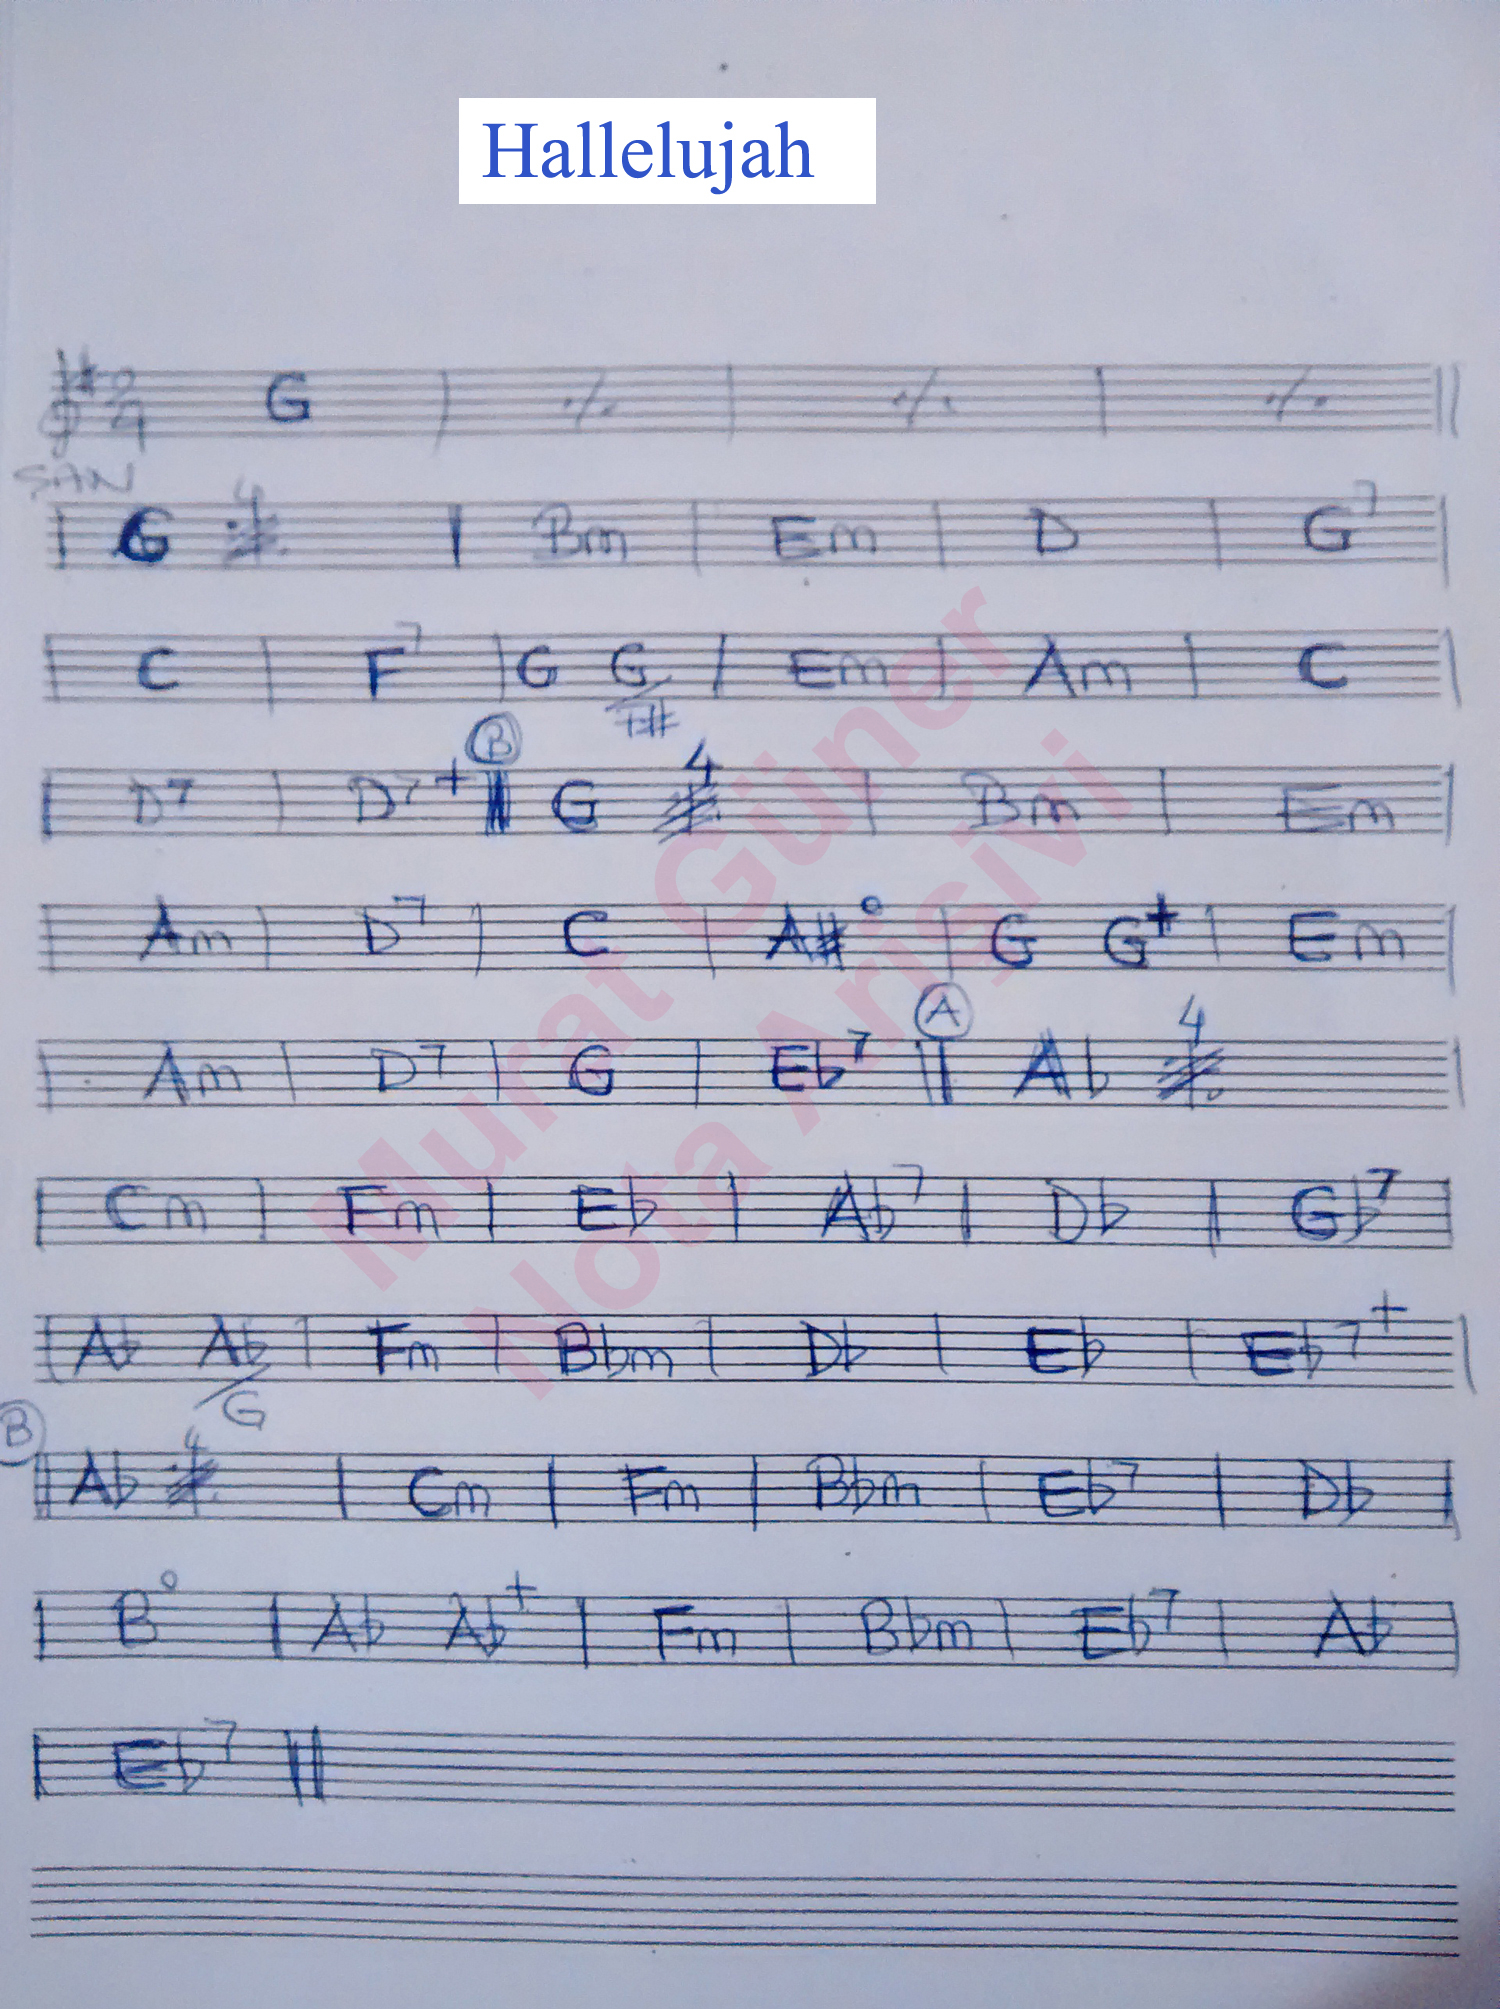 Hallelujah
# 2/4 G | ٪ | ٪ | ٪ ||
SAN
| G 4 | Bm | Em | D | G7 |
| C | F7 | G G/F# | Em | Am | C |
B
| D7 | D7+ || G 4 | Bm | Em |
| Am | D7 | C | A#° | G G+ | Em |
A
| Am | D7 | G | Eb7 || Ab 4 |
| Cm | Fm | Eb | Ab7 | Db | Gb7 |
| Ab Ab/G | Fm | Bbm | Db | Eb | Eb7+ |
B
|| Ab 4 | Cm | Fm | Bbm | Eb7 | Db |
| B° | Ab Ab+ | Fm | Bbm | Eb7 | Ab |
| Eb7 ||
Murat Güner
Nota Arişivi